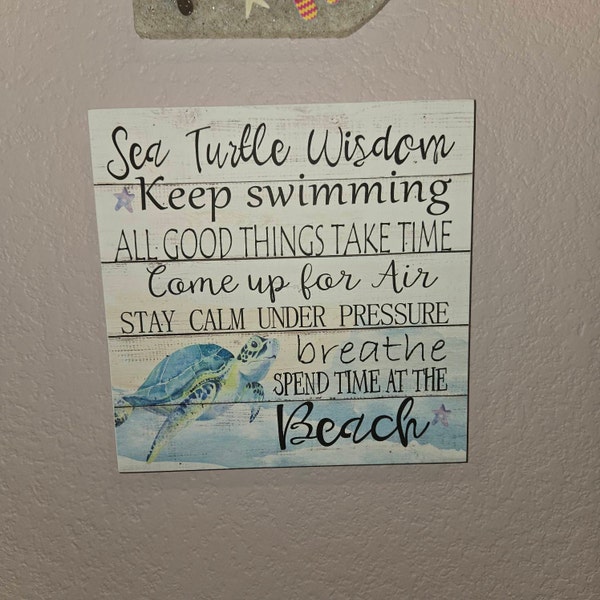 Sea Turtle Wisdom
Keep swimming
ALL GOOD THINGS TAKE TIME
Come up for Air
STAY CALM UNDER PRESSURE
breathe
SPEND TIME AT THE
Beach